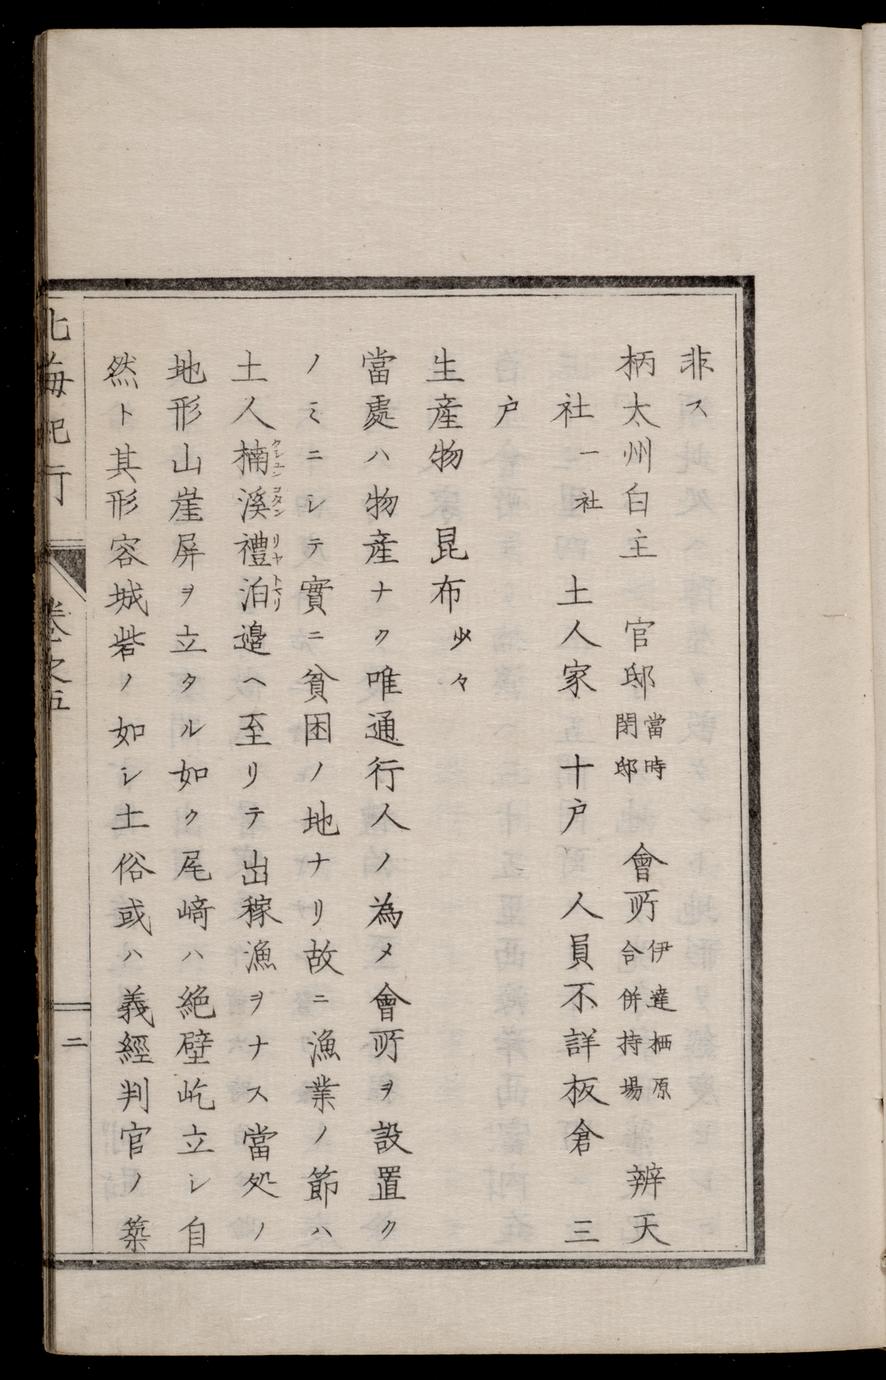 非ス
柄太州白主　官邸 當時閉邸　會所 伊達栖原合併持場　辨天
社 一社　土人家　十戸　人員不詳板倉　三
戸
生産物　昆布 少々
當處ハ物産ナク唯通行人ノ為メ會所ヲ設置ク
ノミニシテ實ニ貧困ノ地ナリ故ニ漁業ノ節ハ
土人楠溪禮泊邉ヘ至リテ出稼漁ヲナス當処ノ
クシュンコタン リヤトマリ
地形山崖屏ヲ立タル如ク尾﨑ハ絶壁屹立シ自
然ト其形容城砦ノ如シ土俗或ハ義經判官ノ築
北海紀行　卷之五　二